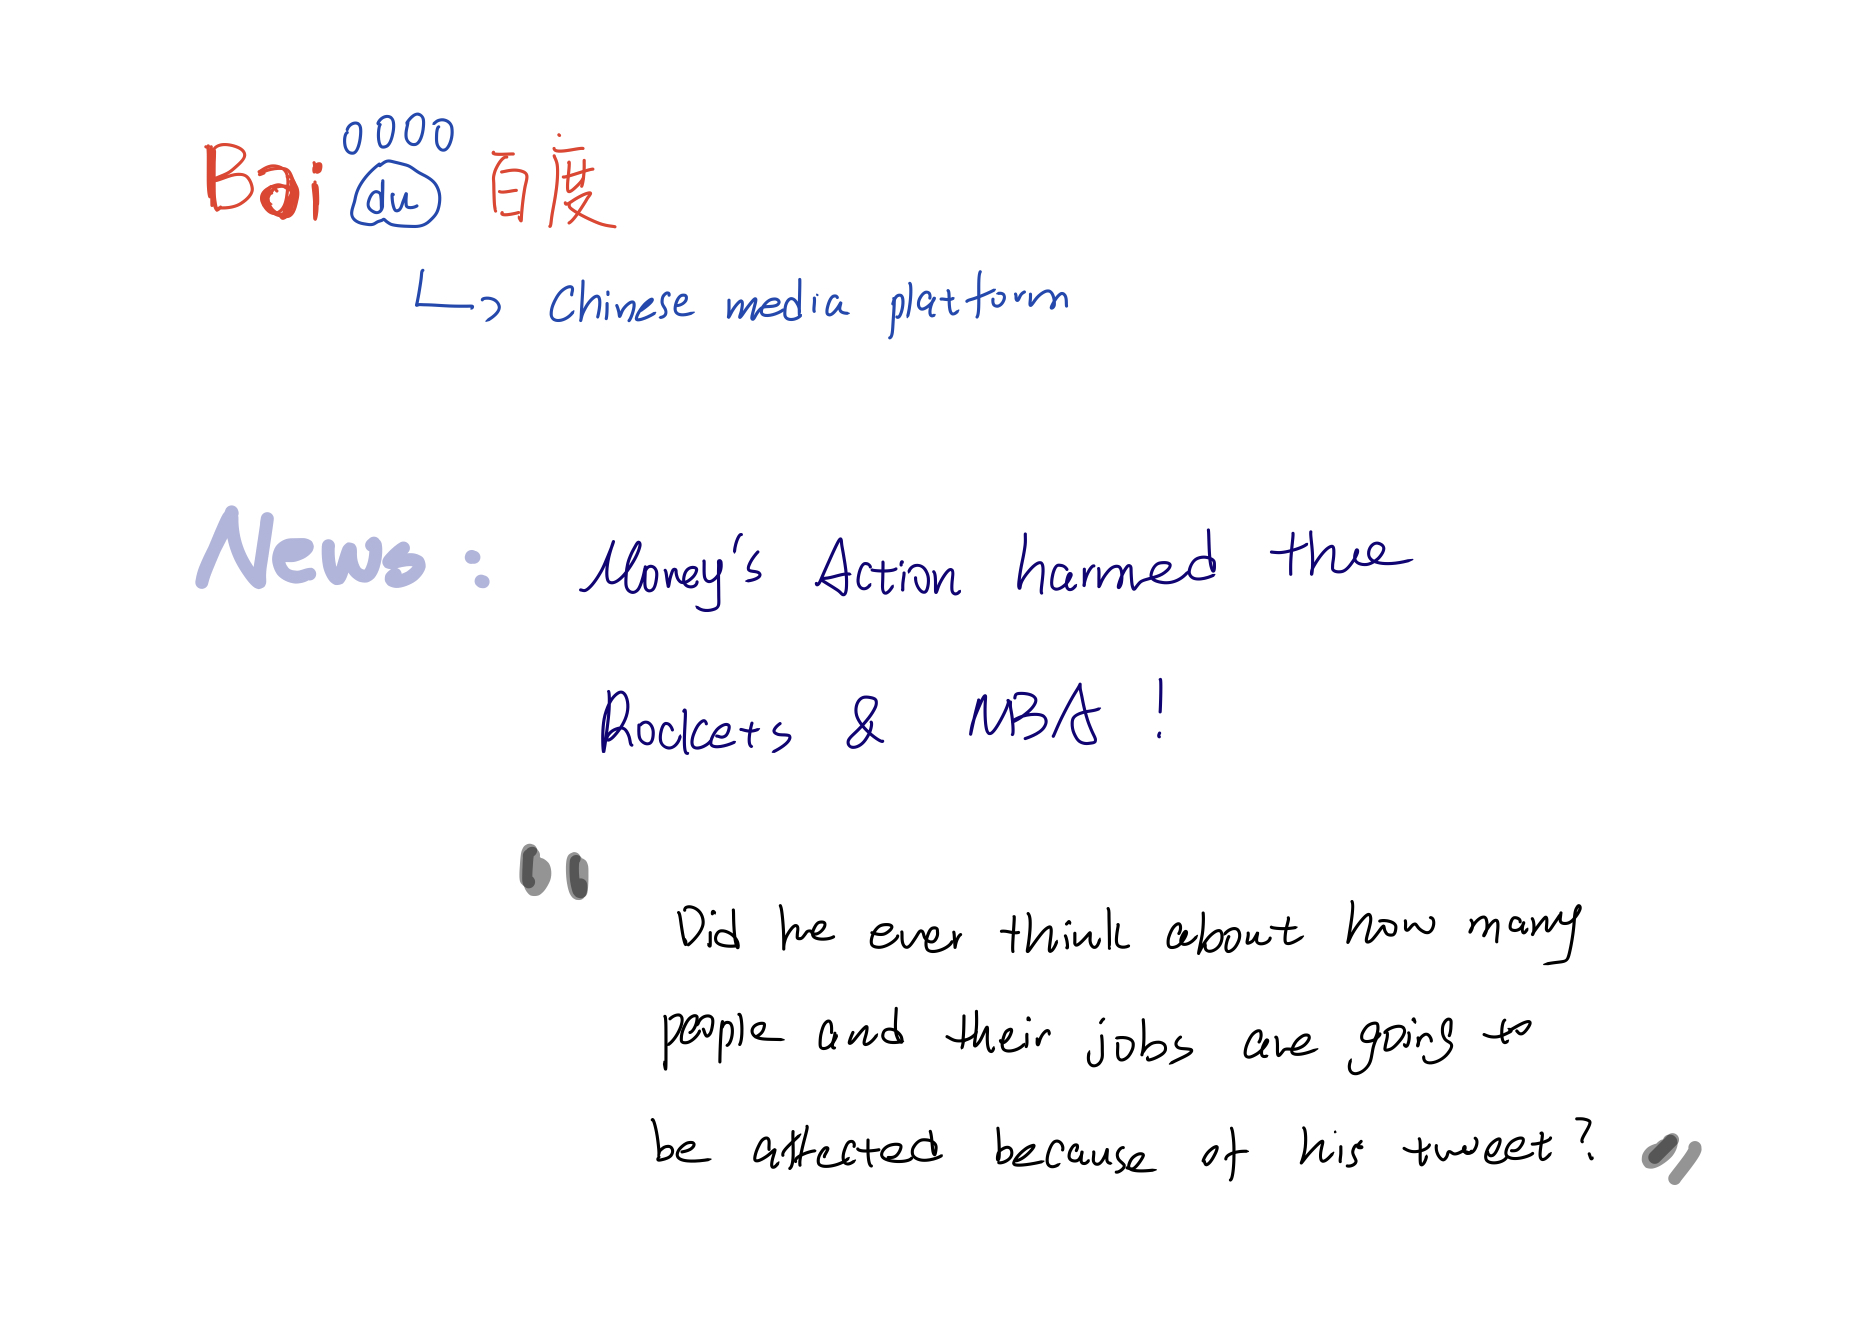 Bai du 百度
Chinese media platform
News: Morey's Action harmed the
Rockets & NBA!
"Did he ever think about how many
people and their jobs are going to
be affected because of his tweet?"